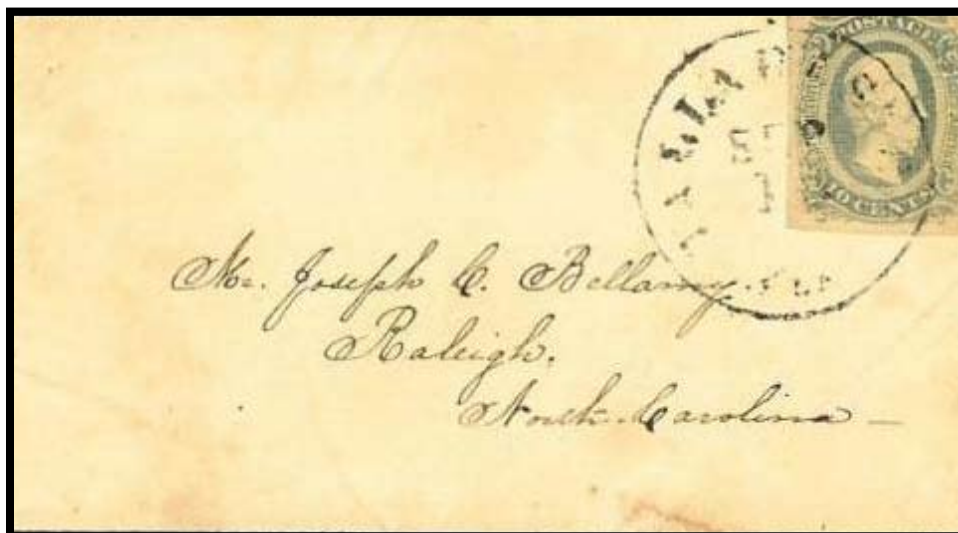 POSTAGE
10 CENTS
Mr. Joseph C. Bellamy.
Raleigh.
North-Carolina —